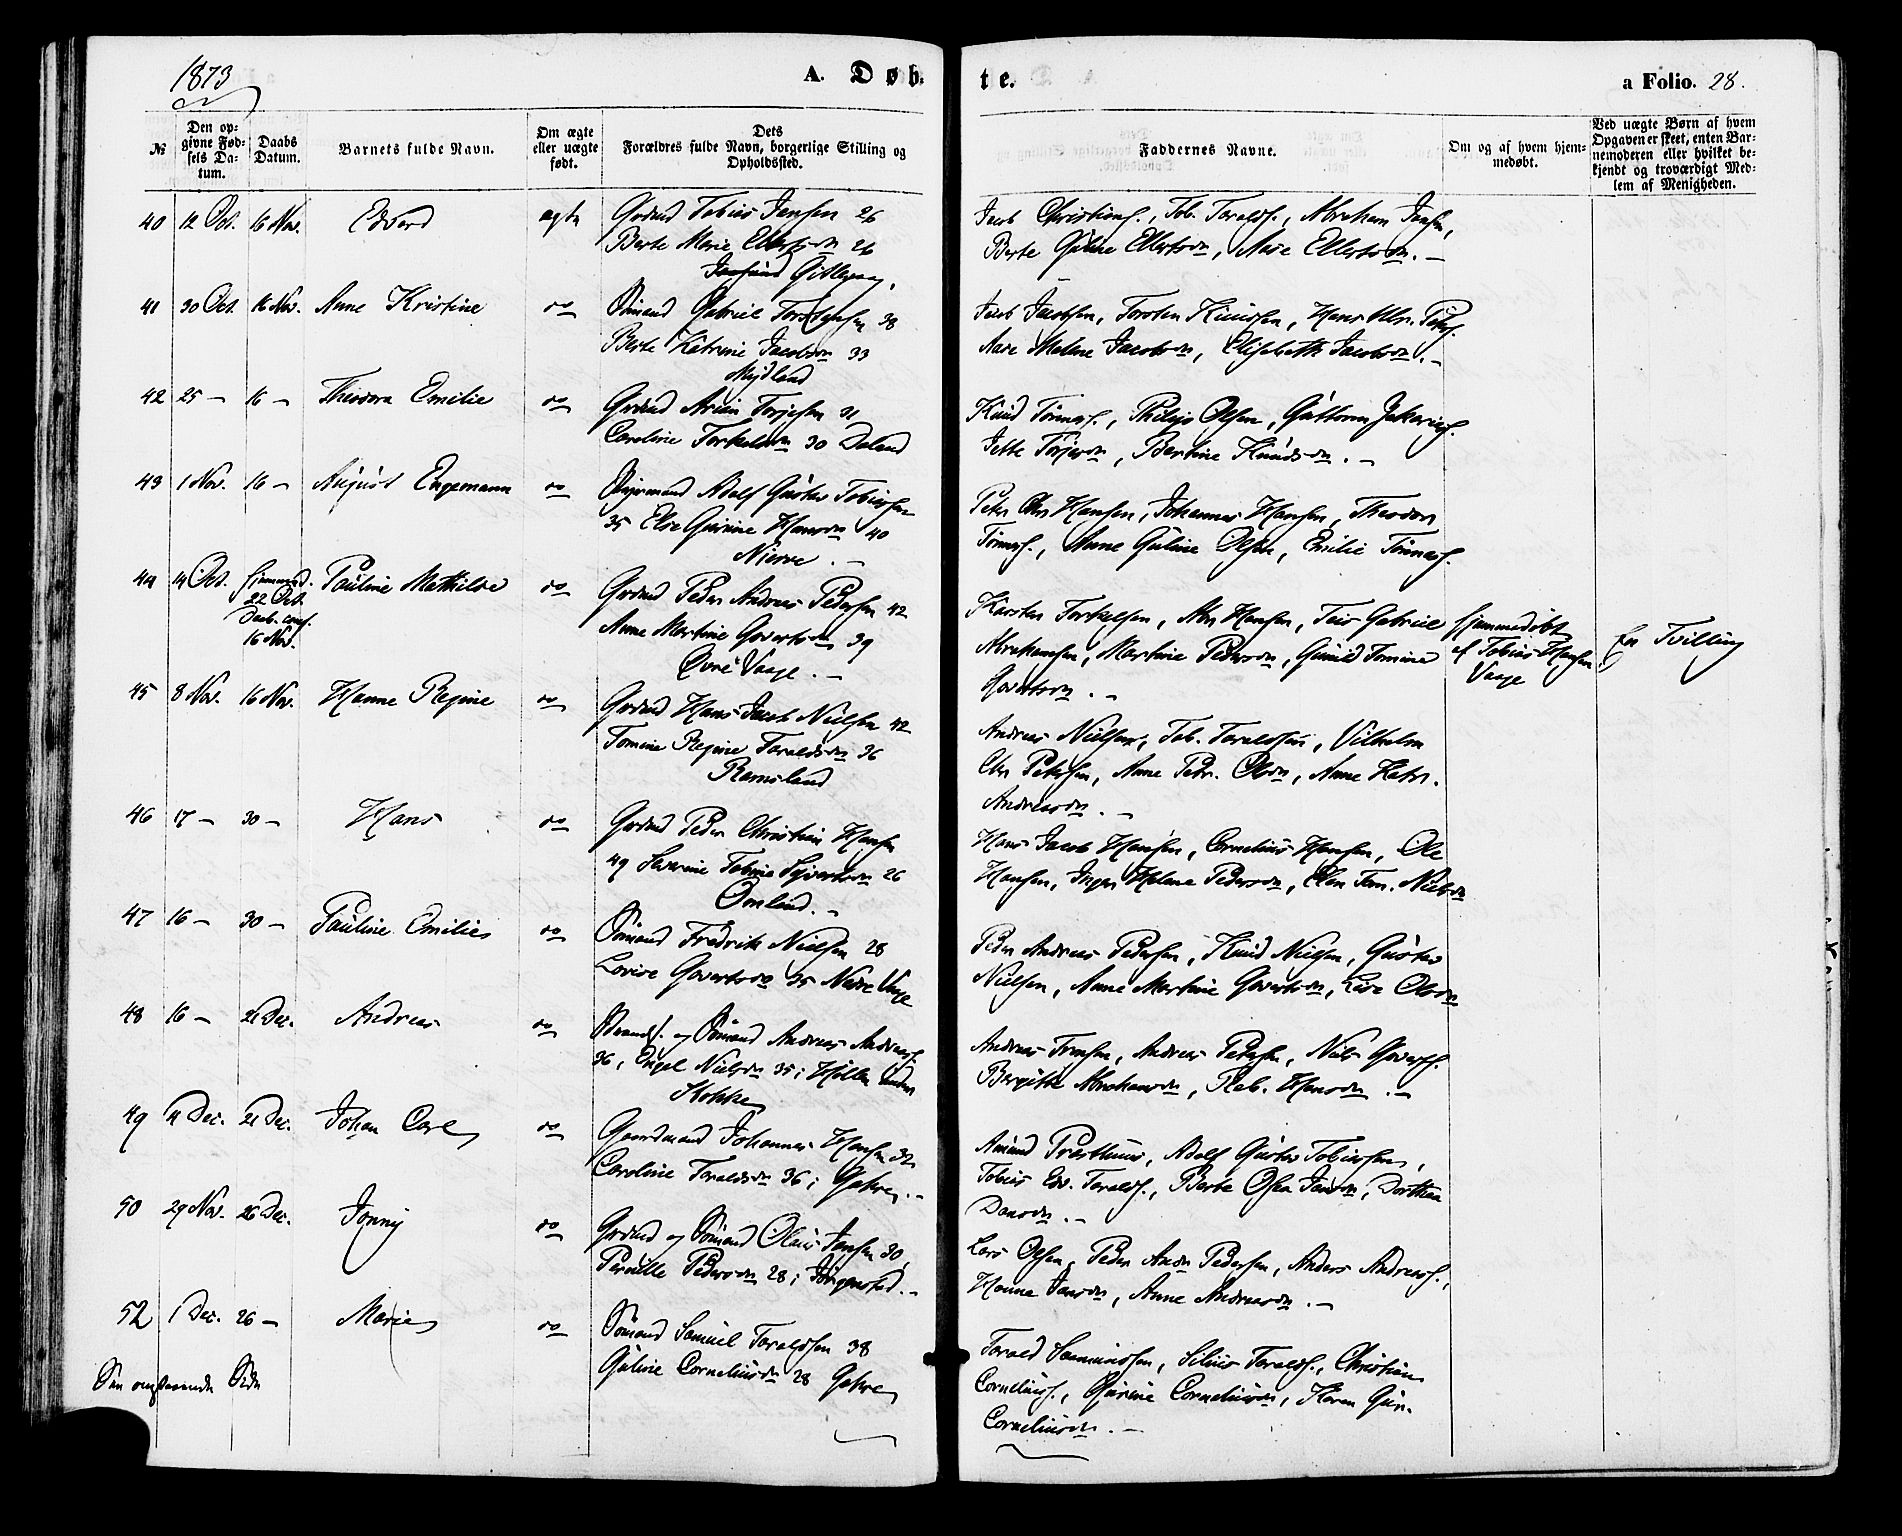 1873
A. Døb-
te.
a Folio. 28.
№
Den op-
givne Fød-
sels Da-
tum.
Daabs
Datum.
Barnets fulde Navn.
Om ægte
eller uægte
født.
Dets
Forældres fulde Navn, borgerlige Stilling og
Opholdssted.
Faddernes Navne.
Om og af hvem hjem-
medøbt.
Ved uægte Børn af hvem
Opgaven er skeet, enten Bar-
nemoderen eller hvilket be-
kjendt og troværdigt Med-
lem af Menigheden.
40 12 Oct. 16 Nov. Edvard ægte Grdmd Tobias Jensen 26
Berte Marie Ellertsdn 26
Jacob Christians., Tob. Taralds., Abraham Jensen,
Berte Guline Ellertsdn, Mare Ellertsdn. —
41 30 Oct. 16 Nov. Anne Kristine do Sømand Gabriel Torstensen 38
Berte Katrine Jacobsdn 33
Mydland
Jacob Jacobsen, Torsten Knudsen, Hans Chr. Peters.
Mare Malene Jacobsdn, Elisabeth Jacobsdn. —
42 25 — 16 — Theodora Emilie do Grdmd Arian Terjesen 31
Caroline Torkelsdn 30 Daland
Knud Tønnes., Philip Olsen, Guttorm Zakarias.
Jette Terjesdn, Bertine Knudsdn. —
43 1 Nov. 16 — August Engemann do Styrmand Adolf Gustav Tobiassen
35 Else Gurine Hansdn 40
Nierve. —
Peter Chr Hansen, Johannes Hansen, Theodor
Tønnes., Anne Guline Olsen, Emilie Tønnes.
44 14 Oct. hjemmed.
22 Oct.
Daab. conf.
16 Nov. Pauline Mathilde do Grdmd Peder Andreas Pedersen 42
Anne Martine Govertsdn 39
Øvre Vaage. —
Karsten Torkelsen, Abr Hansen, Teis Gabriel
Abrahamsen, Martine Pedersdn, Gunild Tomine
Govertsdn. —
hjemmedøbt
af Tobias Hansen
Vaage
En Tvilling
45 8 Nov. 16 Nov. Hanne Regine do Grdmd Hans Jacob Nielsen 42
Tomine Regine Taraldsdn 36
Ramsland
Andreas Nielsen, Tob. Taraldsen, Vilhelm
Chr Petersen, Anne Petr. Olsdn, Anne Katr.
Andreasdn. —
46 17 — 30 — Hans do Grdmd Peder Christian Hansen
49 Severine Tobine Syvertsdn 26
Omland. —
Hans Jacob Hansen, Cornelius Hansen, Ole
Hansen, Inger Helene Pedersdn, Elen Tom. Nielsdn
47 16 — 30 — Pauline Emilie do Sømand Fredrik Nielsen 28
Lovise Govertsdn 35 Nedre Vaage
Peder Andreas Pedersen, Knud Nielsen, Gustav
Nielsen, Anne Martine Govertsdn, Lise Olsdn
48 16 — 21 Dec. Andreas do Strands. og Sømand Andreas Andreas.
36, Engel Nielsdn 35 i Høllen under
Kokke
Andreas Andreas Petersen, Niels Goverts.
Bergitte Abrahamsdn, Reb. Hansdn. —
49 11 Dec. 21 Dec. Johan Carl do Gaardmand Johannes Hansen 32
Caroline Taraldsdn 36 i Gahre. —
Amund Presthuus, Adolf Gustav Tobiassen,
Tobias Edv. Taralds., Berte Olea Jansdn, Dorthea
Dansdn. —
50 29 Nov. 26 Dec. Jonny do Grdmd og Sømand Olaus Jensen 30,
Pernille Pedersdn 28 i Jørgensted. —
Lars Olsen, Peder Andr Pedersen, Anders Andreas.,
Hanne Jansdn, Anne Andreasdn. —
52 1 Dec. 26 — Marie do Sømand Samuel Taraldsen 38
Guline Corneliusdn 28 Gahre
Tarald Samuelsen, Silius Taralds., Christian
Cornelius., Gurine Corneliusdn, Karen Gur.
Corneliusdn. —
Side